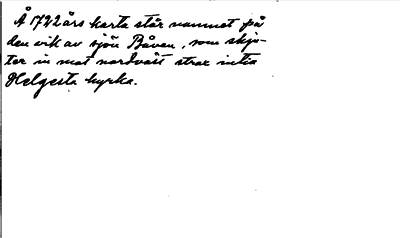 Å 1722 års karta står namnet på
den vik av sjön Båven, som skju-
ter in mot nordväst strax intia
Helgesta kyrka.